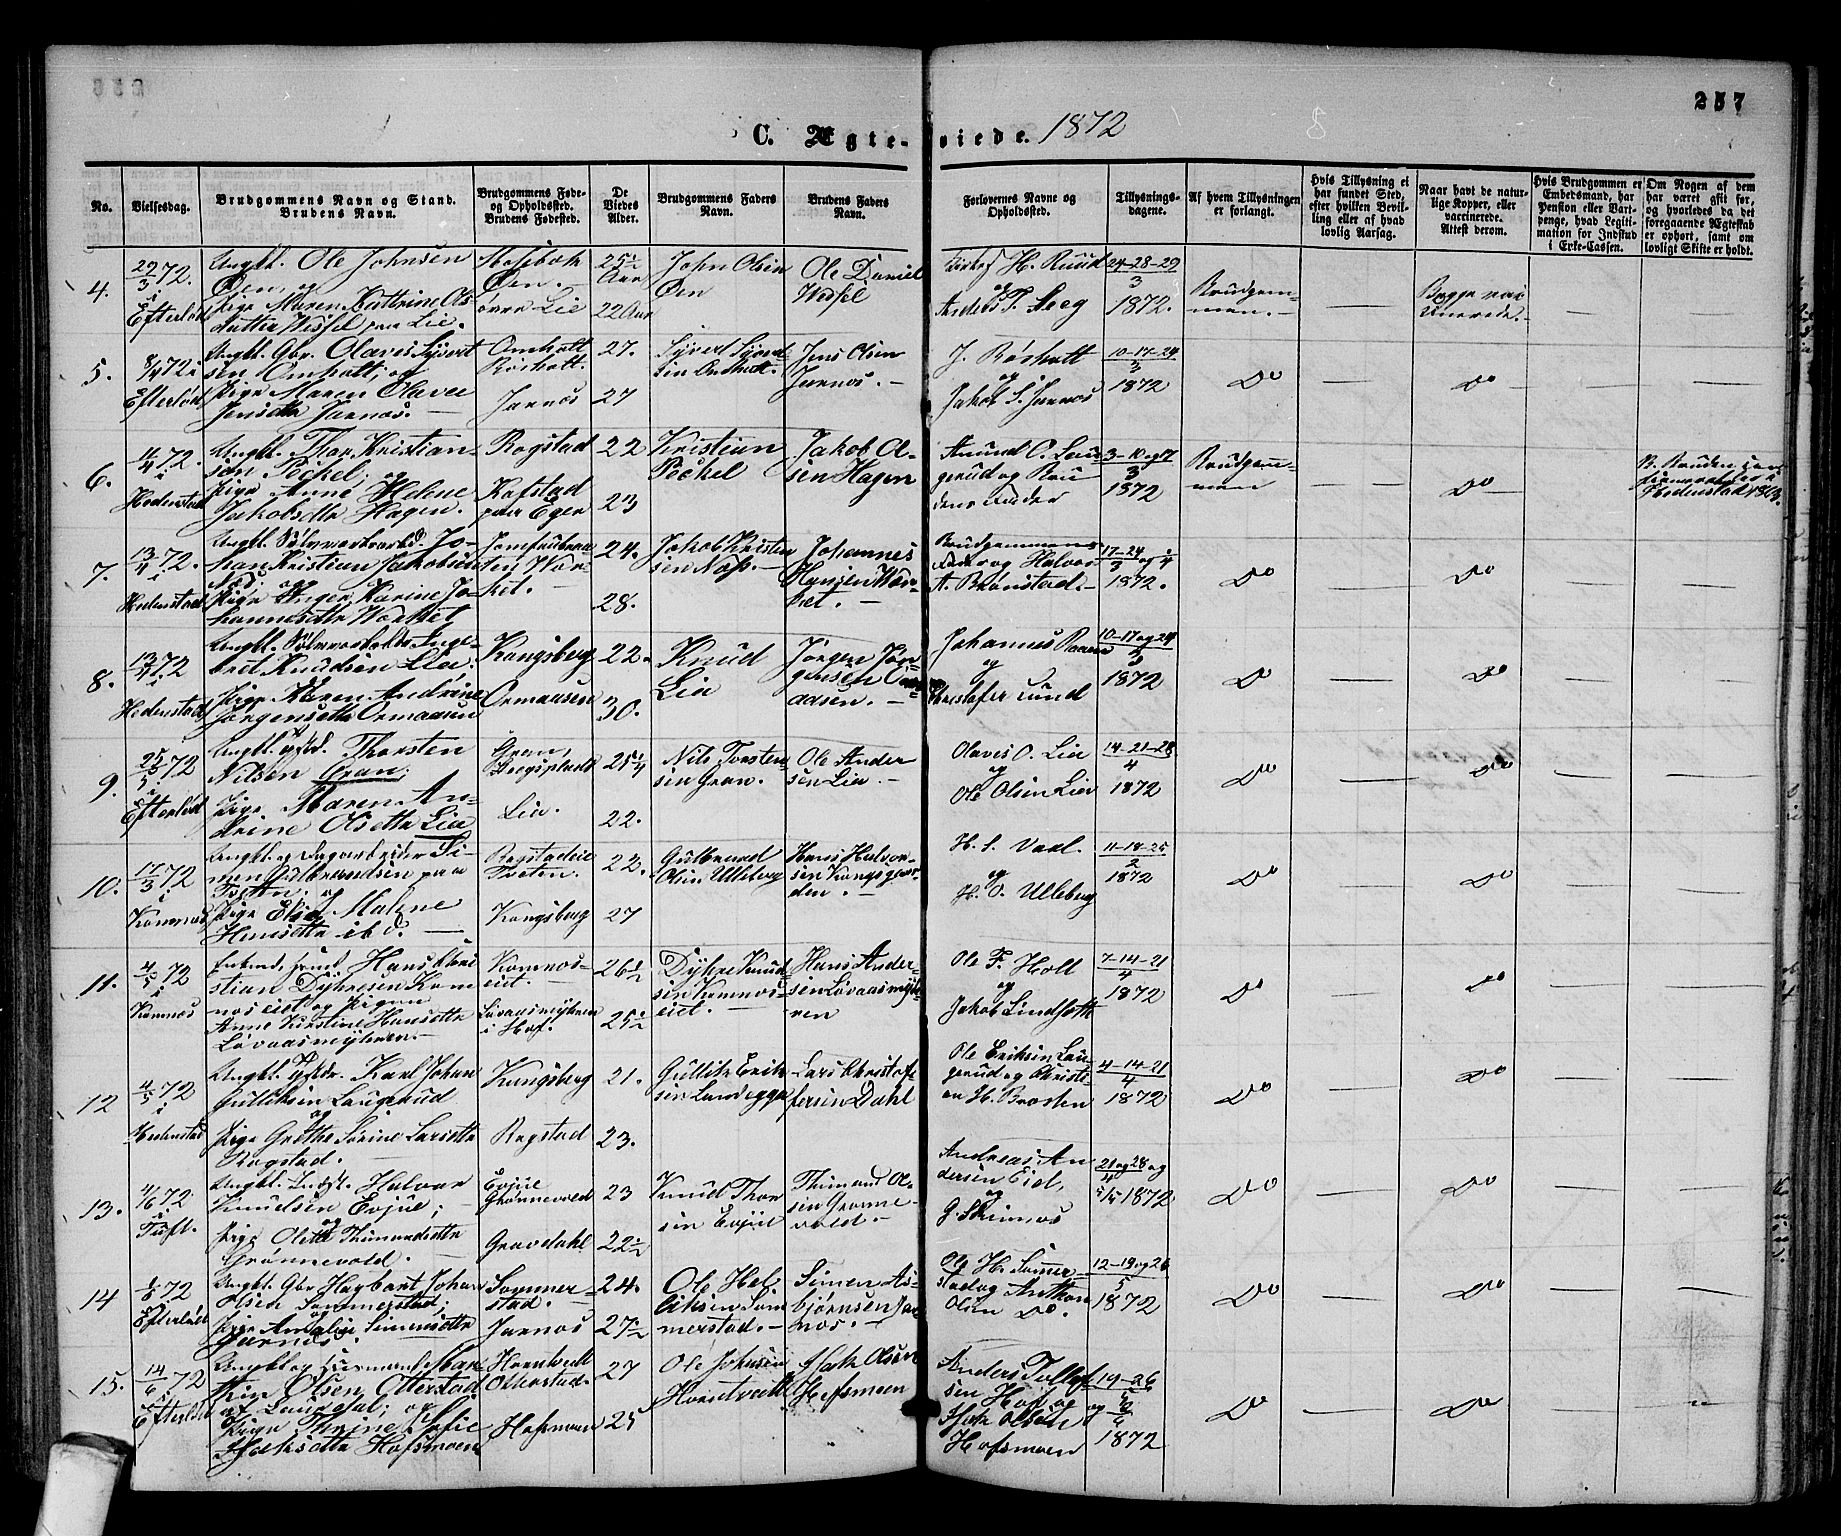 257
C. Ægte-viede. 1872
No.
Vielsesdag.
Brudgommens Navn og Stand.
Brudens Navn.
Brudgommens Føde-
og Opholdssted.
Brudens Fødested.
De
Viedes
Alder.
Brudgommens Faders
Navn.
Brudens Faders
Navn.
Forlovernes Navne og
Opholdssted.
Tillysnings-
dagene.
Af hvem Tillysningen
er forlangt.
Hvis Tillysning ei
har fundet Sted,
efter hvilken Bevil-
ling eller af hvad
lovlig Aarsag.
Naar havt de natur-
lige Kopper, eller
vaccinerede.
Attest derom.
Hvis Brudgommen er
Embedsmand, har
Pension eller Vart-
penge, hvad Legiti-
mation for Indskud
i Enke-Cassen.
Om Nogen af dem
har været gift før,
og hvorledes da det
foregaaende Ægteskab
er ophørt, samt om
lovligt Skifte er holdt.
4.
29/3 72.
i
Efterløt
Ungkl. Ole Johnsen
Øen, og
Pige Maren Kathrine Ols-
datter Wessel paa Lie.
Øen.
øvre Lie
25½
Aar
22 Aar
John Olsen
Øen
Ole Daniel
Wessel
H. Ruud
og
Anders T. Steg
24-28-29
3
1872.
Brudgom-
men.
Begge vac-
cinerede.
5.
8/4 72 i
Efterløt
Ungkl. Gbr. Olaves Syvert
sen Omholt; og
Pige Maren Olave
Jensdtr Jarnos.
Omholt
Røsholt.
Jarnos
27.
27
Syvert Syvert-
sen Omholt.
Jens Olsen
Jarnos.
J. Røsholt
og
Jakob S. Jarnos
10-17-24
3
1872
Do
Do
6.
11/4 72.
i
Hedenstad
Ungkl. Thor Kristian-
sen Pechel; og
Pige Anne Helene
Jakobsdtr Hagen.
Rogstad
Kofstad
paa Eger
22
23
Kristian
Pechel
Jakob Ol-
sen Hagen
Anund O. Lau
gerud og Bru
dens Fader
3-10 og 17
3
1872
Brudgom-
men
Do
B. Bruden con-
firmeret i
Hedenstad 1863.
7.
13/4 72.
i
Hedenstad
Ungkl. Sølvværksarbd. Jo-
han Kristian Jakobsen
Næs; og
Pige Inger Karine Jo-
hannesdtr Wærket
24.
28.
Jakob Kristen
sen Næs.
Johannes
Hansen Wær-
ket.
Brudgommens
Fader og Halvor
A. Brønstad.
17-24 og 1
3 4
1872.
Do
Do
8.
13/4 72
i
Hedenstad
brit Knudsen Lia.
Pige Karen Andrine
Jørgensdtr Ormaasen
Kongsberg
Ormaasen
22.
30.
Knud
Lia
Jørgen Jør-
gensen Orm-
aasen.
Johannes Raaen
og
Kristofer Lund
10-17 og 24
3
1872
Do
Do
9.
25/5 72
i
Efterløt
Ungkl. Thorsten
Nilsen Gran;
Pige Maren An-
drine Olsdtr Lia
Gran,
Lia.
25¼
22.
Nils Torsten-
sen Gran.
Ole Ander
sen Lia.
Olaves O. Lia
og
Ole Olsen Lia
14-21-28
4
1872
Do
Do
10.
17/3 72
i
Komnos
Ungkl. og Dagarbeider Si-
men Gulbrandsen paa
Tveten. og
Pige Elise Malene
Hansdtr ibd.
Rogstadeie
Tveten.
Kongsberg
22.
27
Gulbrand
Olsen Ulleberg
Hans Halvor-
sen Kongsgaar-
den.
H. S. Vaal.
og
H. O. Ulleberg
11-18-25
2
1872
Do
Do
11.
4/5 72
i
Komnos
Hans Chri
stian Dyhresen Kom
noseiet og Pigen
Anne Kirstine Hansdtr
Løvaasmyhren.
Komnos-
eiet.
Løvaasmyhren
i Hof.
26½
25½
Dyhre Knud
sen Komnos-
eiet.
Hans Ander-
sen Løvaasmyh-
ren
Ole F. Holt
og
Jakob Lindseth
7-14-21
4
1872
Do
Do
12
4/5 72
i
Hedenstad
Ungkl. Karl Johan
Gulliksen Laugerud
og
Pige Grethe Sørine Larsdtr
Rogstad.
Kongsberg
Rogstad
21.
23.
Gullik Erik
sen Lundegge
Lars Christof-
fersen Dahl
Ole Eriksen Lau-
gerud og Christi-
an H. Braaten
4-14-21
4
1872
Do
Do
13.
4/6 72
i
Tuft.
Ungkl. Halvor
Knudsen Evjue;
og
Pige Olette Thimandsdtr
Grønnevold.
Evjue
Grønnevold
Gravdahl
23
22½
Knud Thor
sen Evjue
Thimand Ol-
sen Grønne-
vold.
Andreas An
dersen Eid,
og
G. Skimnos
21 og 28 og
4
5/5 1872
Do
Do
14
1/6 72
Efterløt
Ungkl. Gbr Hagbart Johan
Olsen Sommerstad;
og
Pige Amalie Simensdtr
Jarnos.
Sommer-
stad.
Jarnos
24.
27½
Ole Hel
liksen Som
merstad.
Simen As-
bjørnsen Jar
nos.
Ole H. Sommer-
stad og Anthon
Olsen Do.
12-19 og 26
5
1872
Do
Do
15.
14/6 72
i
Efterløt
Ungkl og Huusmand Mar
thin Olsen Otterstad
af Laurdal; og
Pige Thrine Sofie
Isaksdtr Hofsmoen
Hountvedt
Otterstad.
Hofsmoen
27
25
Ole Johnsen
Hountvedt
Isak Olsen
Hofsmoen
Anders Tollef
sen Hof og
Isak Olsen
Hofsmoen
19-26
5
og 2/6
1872
Do
Do